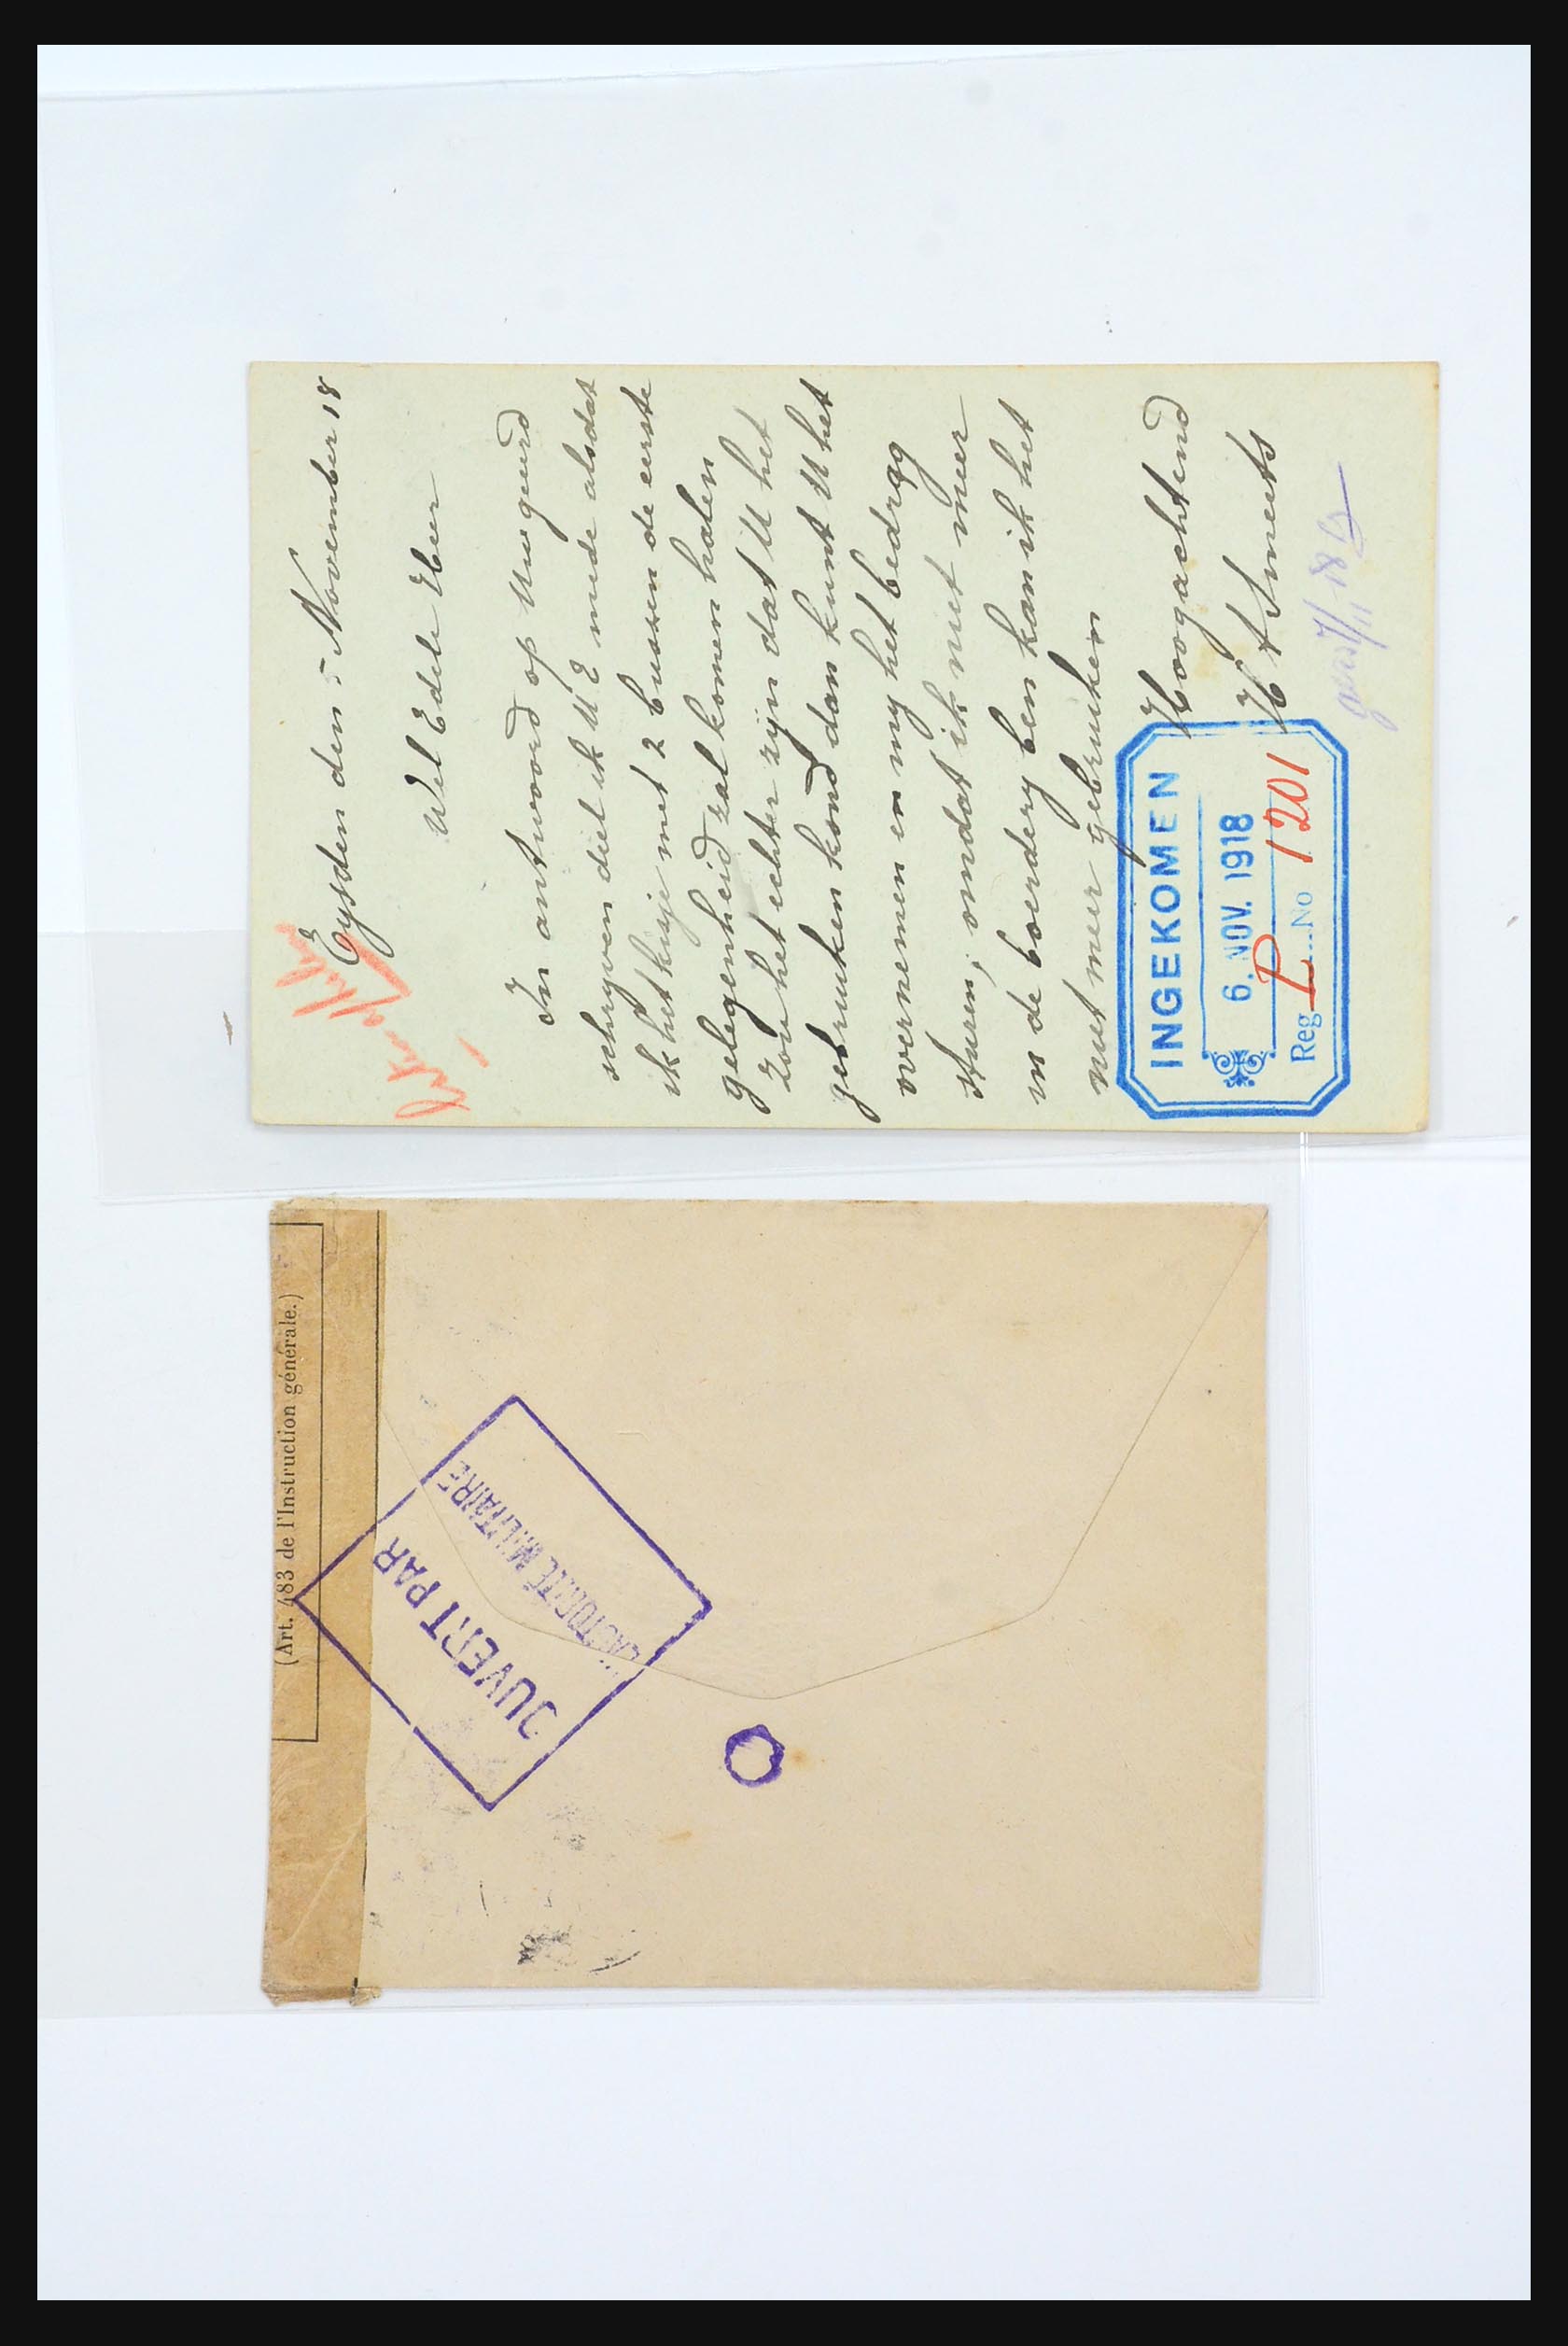 Eysden den 5 November 18
Wel Edele Heer
In antwoord op Uw geeerd
schryven deel ik U E mede alsdat
ik het kisje met 2 bussen de eerste
gelegenheid zal komen halen
zou het echter zijn dat U het
gebruiken kond dan kunt U het
overnemen en my het bedrag
sturen, omdat ik niet meer
in de boerdery ben kan ik het
niet meer gebruiken
Hoogachtend
H A Smeets
INGEKOMEN
6. NOV. 1918
Reg P No 1201
7/11 18
(Art. 483 de l'Instruction générale.)
OUVERT PAR
L'AUTORITÉ MILITAIRE